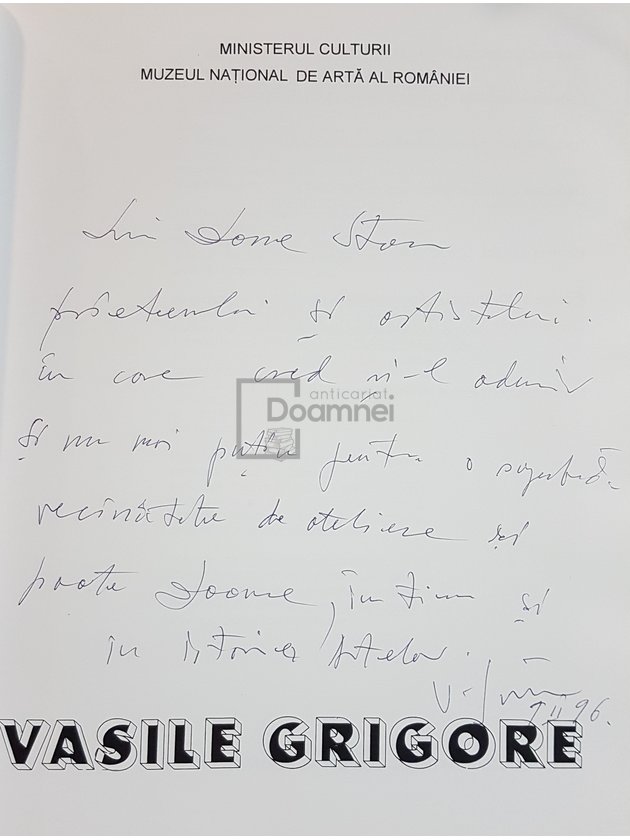 MINISTERUL CULTURII
MUZEUL NAȚIONAL DE ARTĂ AL ROMÂNIEI
Lui Ione Stan
prietenului și artistului.
în care cred și-l admir
anticariat
Doamnei
și nu mai puțin pentru o superbă
vecinătate de ateliere și
poate Doamne, în timp și
în istoria artelor.
9 II 96.
VASILE GRIGORE